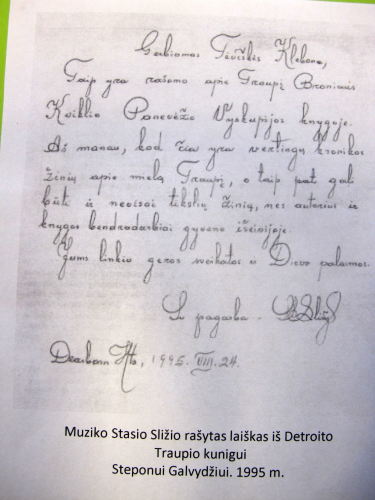 Gerbiamas Tėviškės Klebone,
Taip yra rašoma apie Traupį Broniaus
Kviklio Panevėžio Vyskupijos knygoje.
Aš manau, kad čia yra vertingų kronikos
žinių apie mielą Traupį, o taip pat gal
būti ir nevisai tikslių žinių, nes autorius ir
knygos bendradarbiai gyveno išeivijoje.
Jums linkiu geros sveikatos ir Dievo palaimos.
Su pagarba - StSližys
Dearborn Hts, 1995. VIII. 24.
Muziko Stasio Sližio rašytas laiškas iš Detroito
Traupio kunigui
Steponui Galvydžiui. 1995 m.